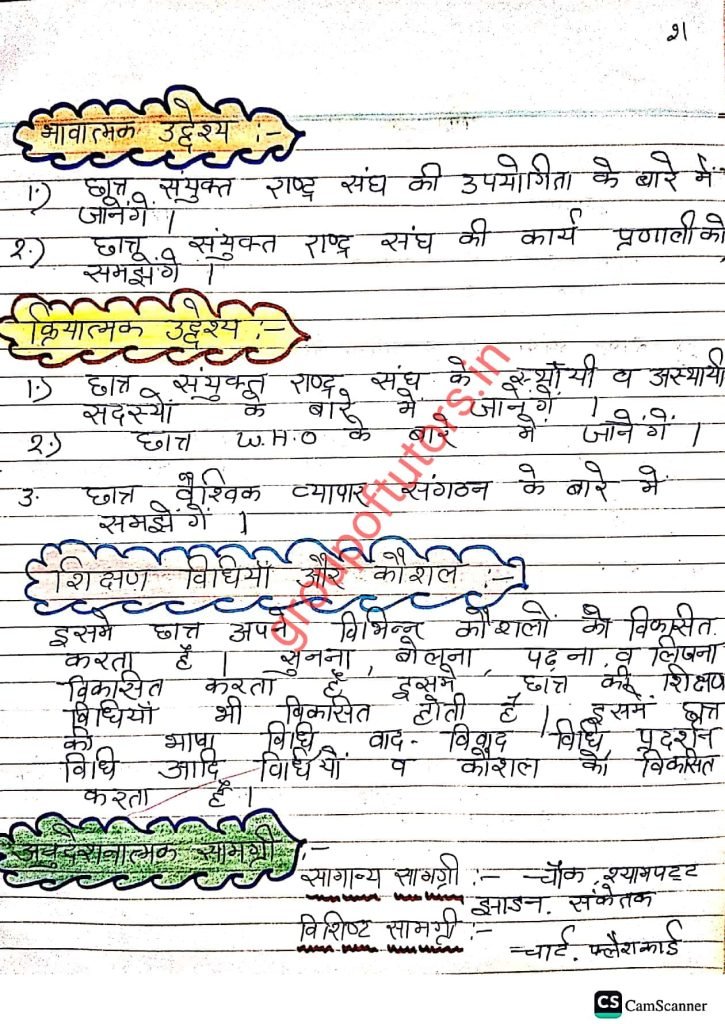 २१
भावात्मक उद्देश्य :-
1.) छात्र संयुक्त राष्ट्र संघ की उपयोगिता के बारे में
जानेगें ।
२.) छात्र संयुक्त राष्ट्र संघ की कार्य प्रणाली को
समझेंगे ।
क्रियात्मक उद्देश्य :-
1.) छात्र संयुक्त राष्ट्र संघ के स्थाँयी व अस्थायी
सदस्यों के बारे में जानेगें ।
2.) छात्र W.H.O के बारे में जानेगें ।
3. छात्र वैश्विक व्यापार संगठन के बारे में
समझेगें ।
शिक्षण विधियाँ और कौशल :-
इसमे छात्र अपने विभिन्न कौशलों को विकसित
करता है । सुनना, बोलना, पढ़ना व लिखना
विकासित करता है इसमे छात्र की शिक्षण
विधियाँ भी विकसित होती है । इसमें छात्र
को भाषा विधि वाद-विवाद विधि, प्रदर्शन
विधि आदि विधियाँ व कौशल को विकसित
करता है ।
अनुदेशनात्मक सामग्री :-
सामान्य सामग्री :- -चॉक, श्यामपट्ट
झाडन, संकेतक
विशिष्ट सामग्री :-
-चार्ट, फ्लैशकार्ड
groupoftutors.in
CS CamScanner